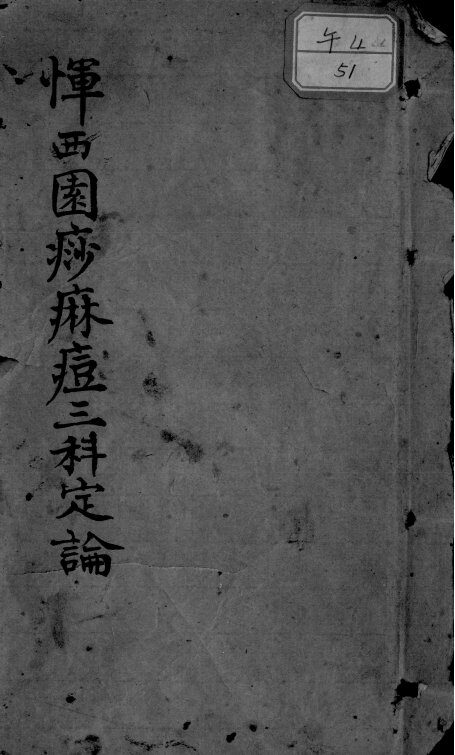 惲西園痧麻痘三科定論
午 4
51